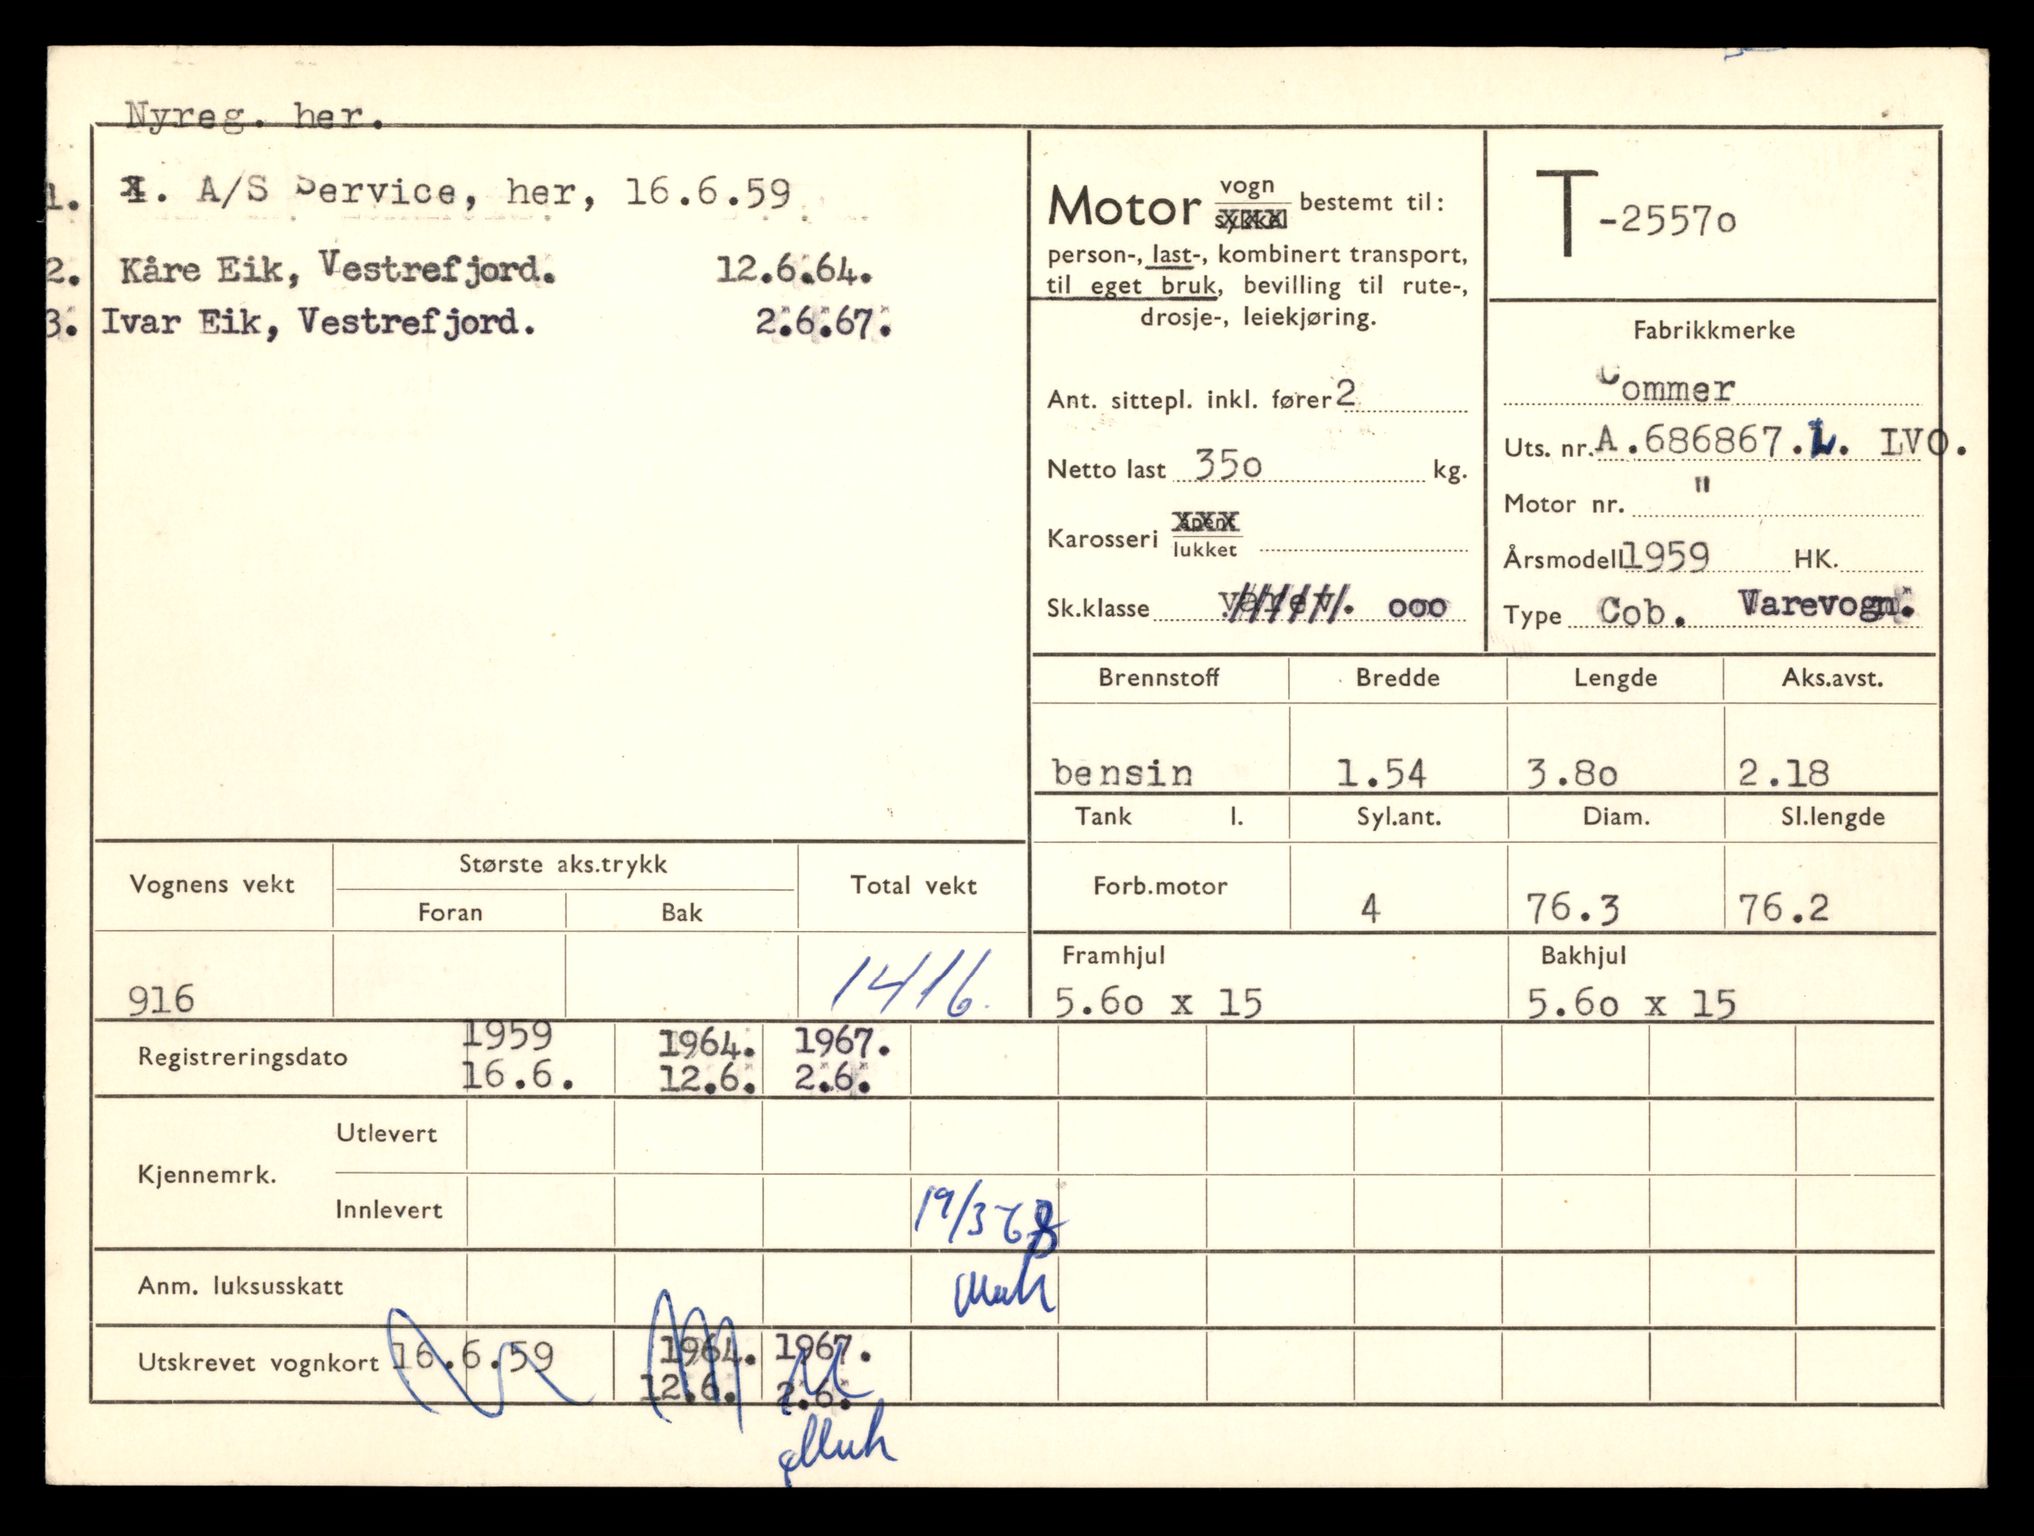 Nyreg. her.
1. A/S Service, her, 16.6.59
2. Kåre Eik, Vestrefjord. 12.6.64.
3. Ivar Eik, Vestrefjord. 2.6.67.
Motor vogn bestemt til:
sykkel
person-, last-, kombinert transport,
til eget bruk, bevilling til rute-,
drosje-, leiekjøring.
Ant. sittepl. inkl. fører 2
Netto last 350 kg.
Karosseri åpent
lukket
Sk.klasse varev. ooo
T-25570
Fabrikkmerke
Commer
Uts. nr. A.686867.L. LVO.
Motor nr. "
Årsmodell 1959 HK.
Type Cob. Varevogn.
Brennstoff Bredde Lengde Aks.avst.
bensin 1.54 3.80 2.18
Tank l. Syl.ant. Diam. Sl.lengde
Forb.motor 4 76.3 76.2
Framhjul Bakhjul
5.60 x 15 5.60 x 15
Vognens vekt Største aks.trykk Total vekt
Foran Bak
916 1416
Registreringsdato 1959 1964. 1967.
16.6. 12.6. 2.6.
Kjennemrk. Utlevert
Innlevert 19/3-68
Anm. luksusskatt
Utskrevet vognkort 16.6.59 1964. 1967.
12.6. 2.6.